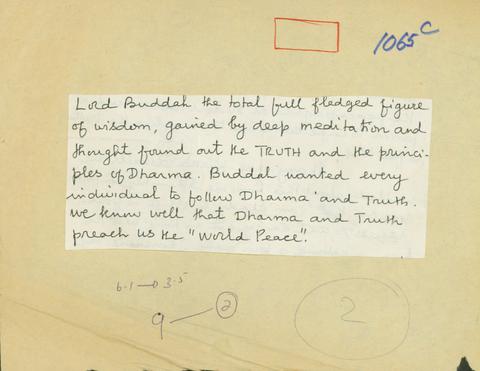 1065 C
Lord Buddah the total full fledged figure
of wisdom, gained by deep meditation and
thought found out the TRUTH and the princi-
ples of Dharma. Buddah wanted every
individual to follow Dharma and Truth.
we know well that Dharma and Truth
preach us the "World Peace".
6.1 → 3.5
9 — 2
2